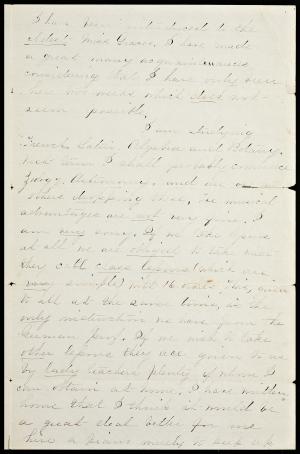 I have been introduced to the
Artist, Miss Graves, I have made
a great many acquaintances
considering that I have only been
here two weeks which does not
seem possible.
I am studying
French, Latin, Algebra and Botany.
Next term I shall probably commence
Astronomy, and
dropping these, the musical
advantages are not very fine. I
am very sorry. If we take piano
at all we are obliged to take
class lessons (which are
very simple) with 16 given
to all at the same time, is the
only instruction we have from the
German prof. If we wish to take
other lessons they are given to us
by lady teachers plenty of whom I
can obtain at home. I have written
home that I think it would be
a great deal better for me
hire a piano merely to keep up